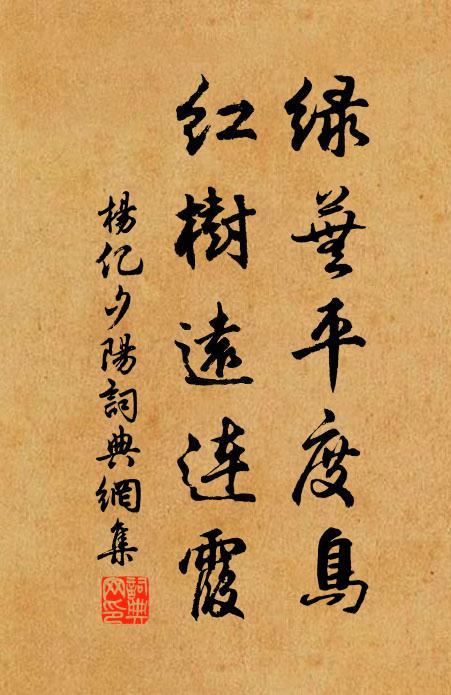 緑蕪平度鳥
紅樹遠連霞
楊亿夕陽詞典網集
詞典
网印